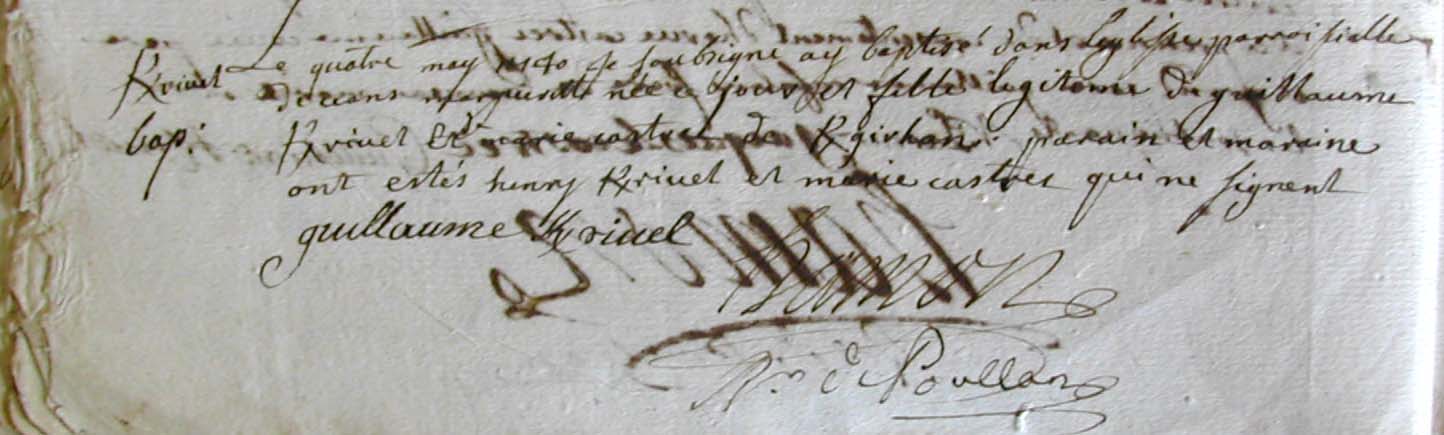 Kricuel Le quatre may 1740 je soubsigné ay baptisé dans leglisse parroissialle
de ceans marguerite née ce jour et fille legitome de guillaume
bap: Kriuel Et marie castrec de Kgirhan. parain et maraine
ont estés henry Kriuel et marie castrec qui ne signent
guillaume Kriuel
hamon
Rr de Poullan